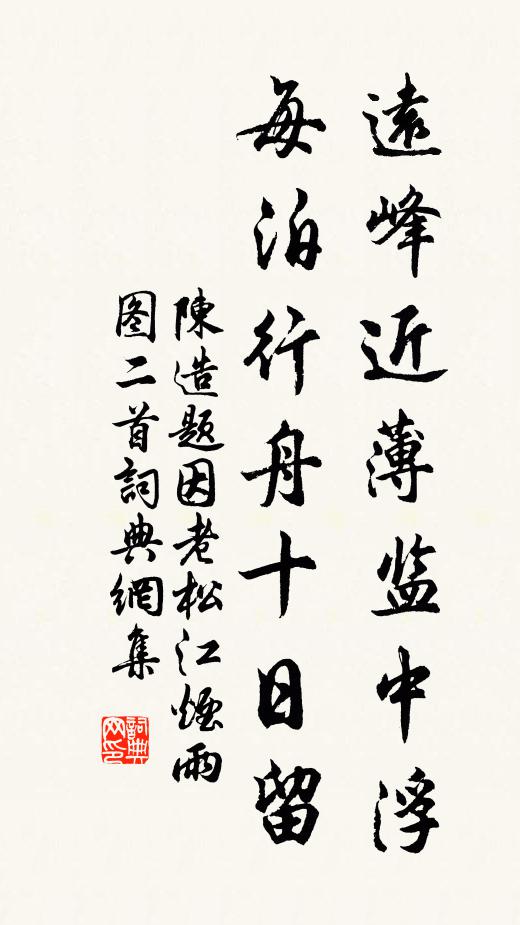 遠峰近薄监中浮
每泊行舟十日留
陳造題因老松江煙雨
图二首詞典網集
詞典網印